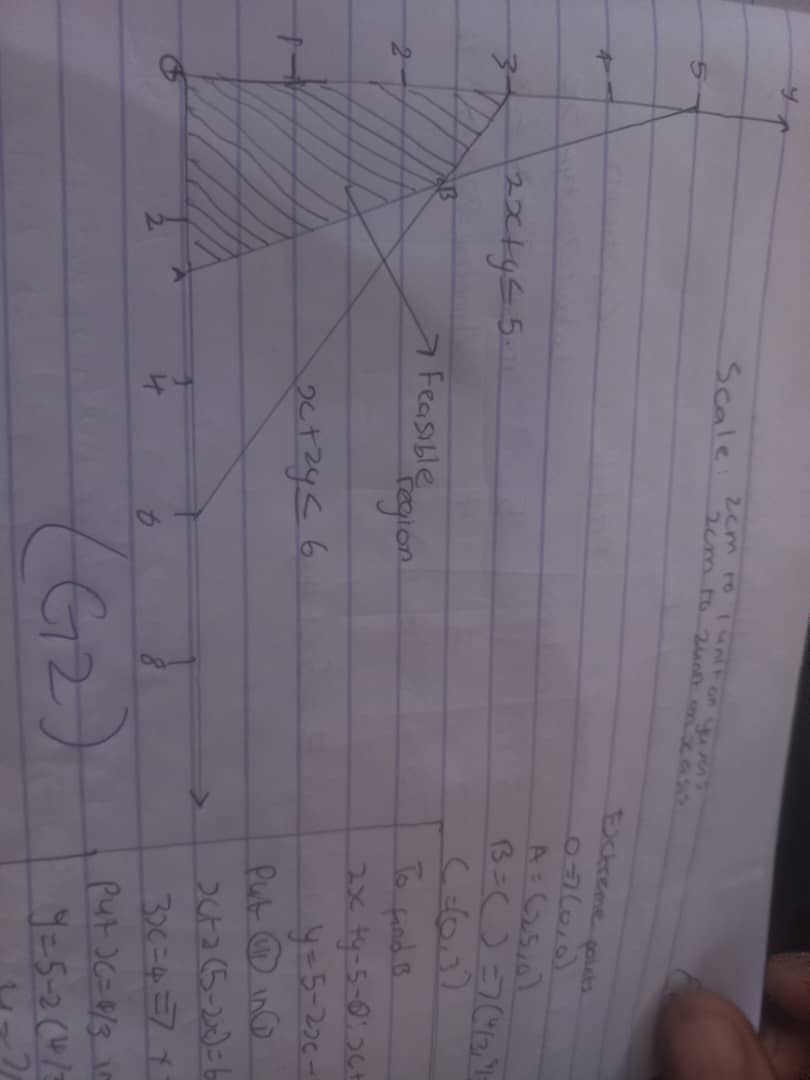 Scale: 2cm to 1 unit on y axis
2cm to 2unit on x axis
y
5
4
3
2
1
O
2
4
6
8
A
B
2x+y≤5.
Feasible
region
x+2y≤6
(G2)
Extreme points
O=>(0,0)
A=(2.5,0)
B=( )=>(4/3,
C=(0,3)
To find B
2x+y=5-
y=5-2x-
Put (iii) in (i)
x+2(5-2x)=6
3x=4=>
Put x=4/3 in
y=5-2(4/3